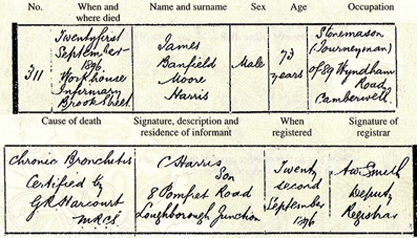 No. When and where died Name and surname Sex Age Occupation
311
Twentyfirst
September
1896
Workhouse
Infirmary
Brook Street
James
Banfield
Moore
Harris
Male
73
years
Stonemason
(Journeyman)
of 89 Wyndham
Road
Camberwell
Cause of death Signature, description and residence of informant When registered Signature of registrar
Chronic Bronchitis
Certified by
G R Harcourt
MRCS.
C Harris
Son
8 Pomfret Road
Loughborough Junction
Twenty
second
September
1896
Aw Smith
Deputy
Registrar